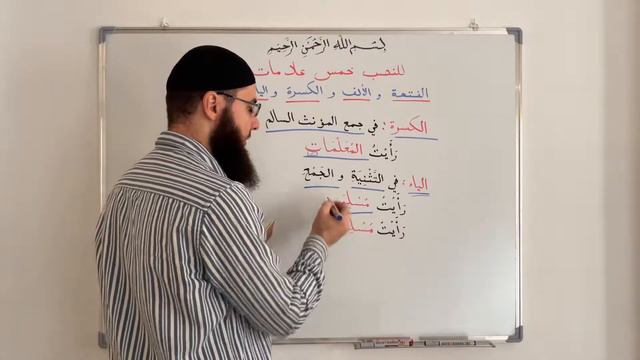 بِسْمِ اللَّهِ الرَّحْمَنِ الرَّحِيمِ
للنصب خمس علامات
الفتحة و الألف و الكسرة و
الكسرة : في جمع المؤنث السالم
رَأَيْتُ المُعَلِّمَاتِ
الياء : في التَّثْنِيَةِ و الجَمْعِ
رَأَيْتُ
رَأَيْتُ